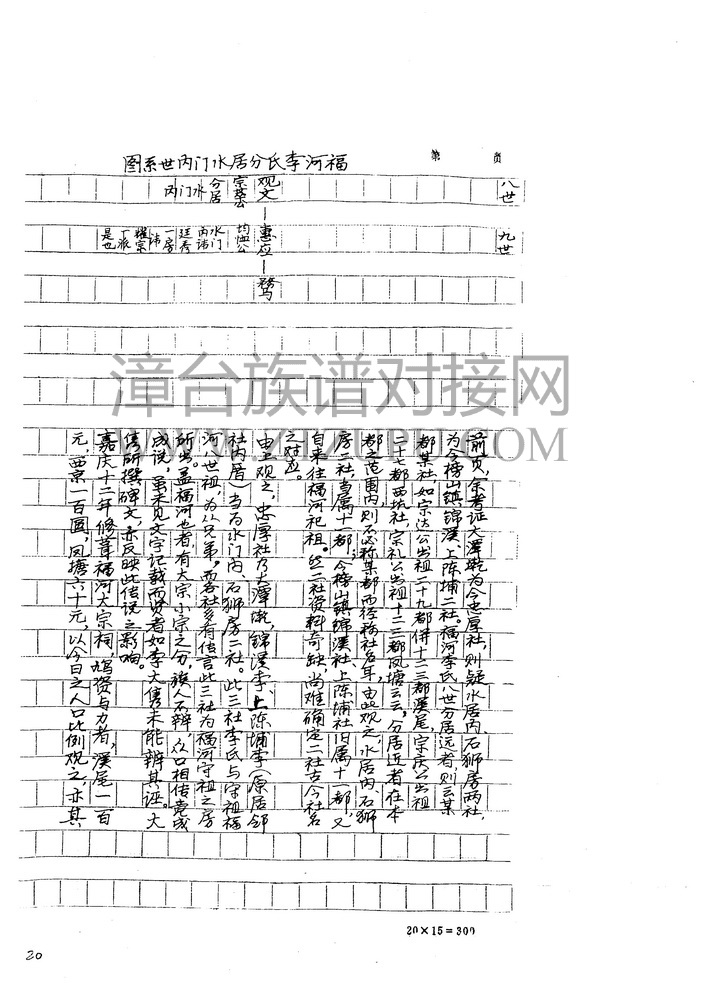 第 页
福河李氏分居水门内世系图
八世
观文
宗基公
分居
水门内
九世
惠应
均恤公
水门
内诸
廷秀
一房
耀宗
丁派
是也
鹜
前页，余考证大潭墘为今忠厚社，则疑水居内石狮房两社，
为今榜山镇锦溪、上陈埔二社。福河李氏八世分居远者则云某
都某社如宗达公出祖二十九都併十二三都溪尾，宗庆公出祖
二十七都西坛社，宗礼公出祖十二三都凤塘云云，分居近者在本
都之范围内，则不必称某都而径称社名耳，由此观之，水居内、石狮
房二社，当属十一都；今榜山镇锦溪社、上陈埔社旧属十一都，又
自来往福河祀祖。然二社资料奇缺，尚难确定二社古今社名
之对应。
由上观之，忠厚社乃大潭墘，锦溪李、上陈埔李（原居邻
社内厝）当为水门内、石狮房二社。此三社李氏与守祖福
河八世祖，为从兄弟。而各社多有传言此三社为福河守祖之房
所出，盖福河也者，有大宗小宗之分，族人不辨，众口相传竟成
成说，虽未见文字记载而贤者如李文隽未能辨其诬。大
隽所撰碑文，亦反映此传说之影响。
嘉庆十二年修葺福河大宗祠，鸠资与力者，溪尾一百
元，西京一百圆，凤塘六十元，以今日之人口比例观之，亦其
20×15=300
20
漳台族谱对接网
WWW.ZTZUPU.COM